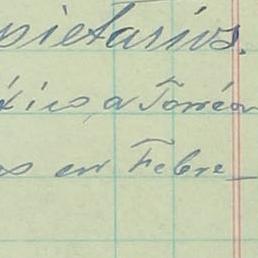 pietarios.
xico, a Torreón
os en Febre-